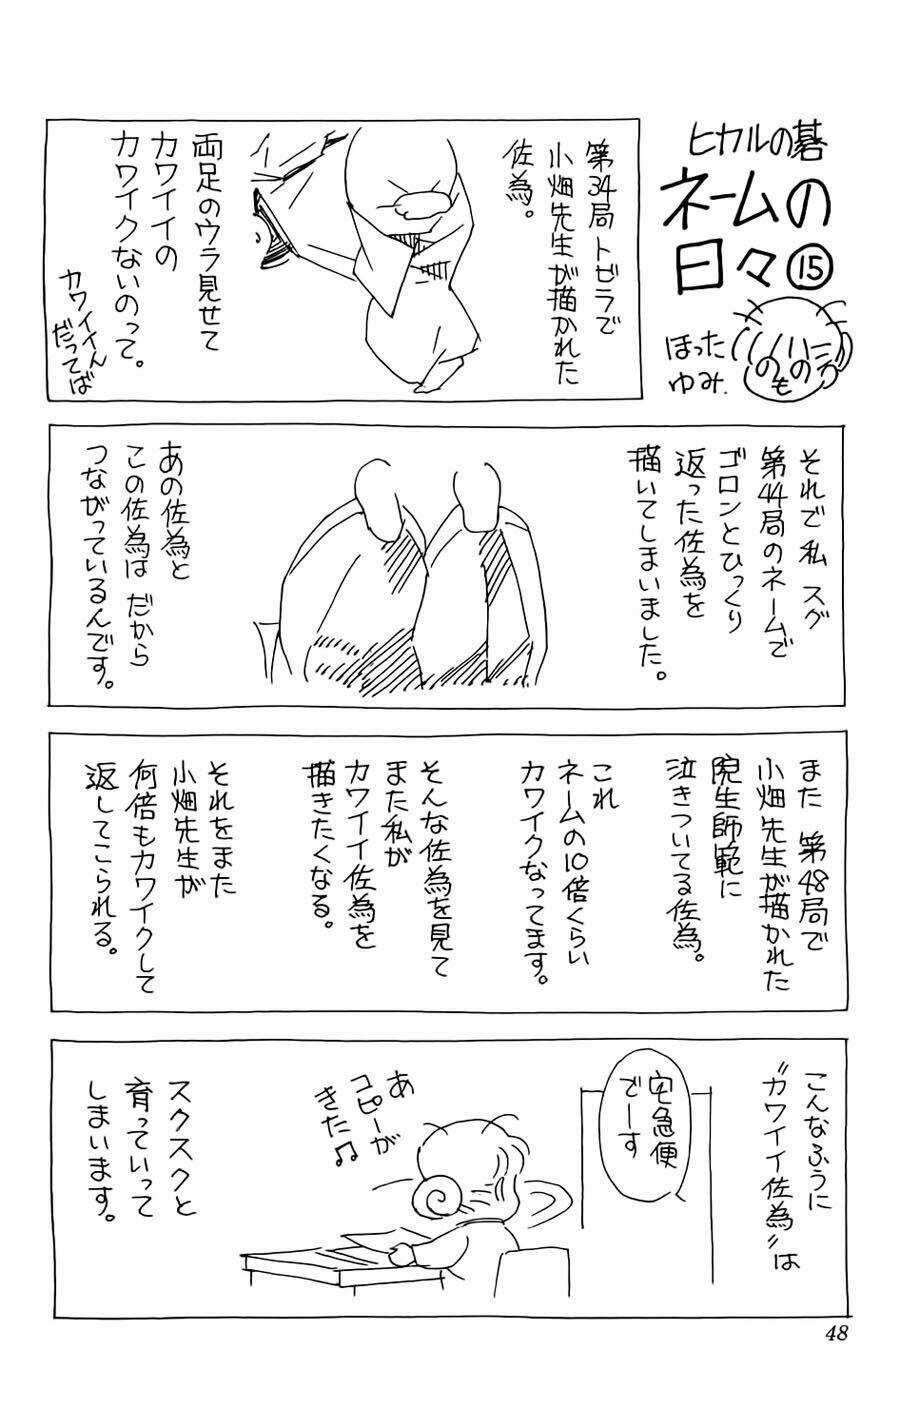 ヒカルの碁
ネームの
日々⑮
ほった
ゆみ.
第34局トビラで
小畑先生が描かれた
佐為。
両足のウラ見せて
カワイイの
カワイクないのって。
カワイイん
だってば
それで私 スグ
第44局のネームで
ゴロンとひっくり
返った佐為を
描いてしまいました。
あの佐為と
この佐為は だから
つながっているんです。
また 第48局で
小畑先生が描かれた
院生師範に
泣きついてる佐為。
これ
ネームの10倍くらい
カワイクなってます。
そんな佐為を見て
また私が
カワイイ佐為を
描きたくなる。
それをまた
小畑先生が
何倍もカワイクして
返してこられる。
こんなふうに
〝カワイイ佐為〟は
宅急便
でーす
あ
コピーが
きた♫
スクスクと
育っていって
しまいます。
48